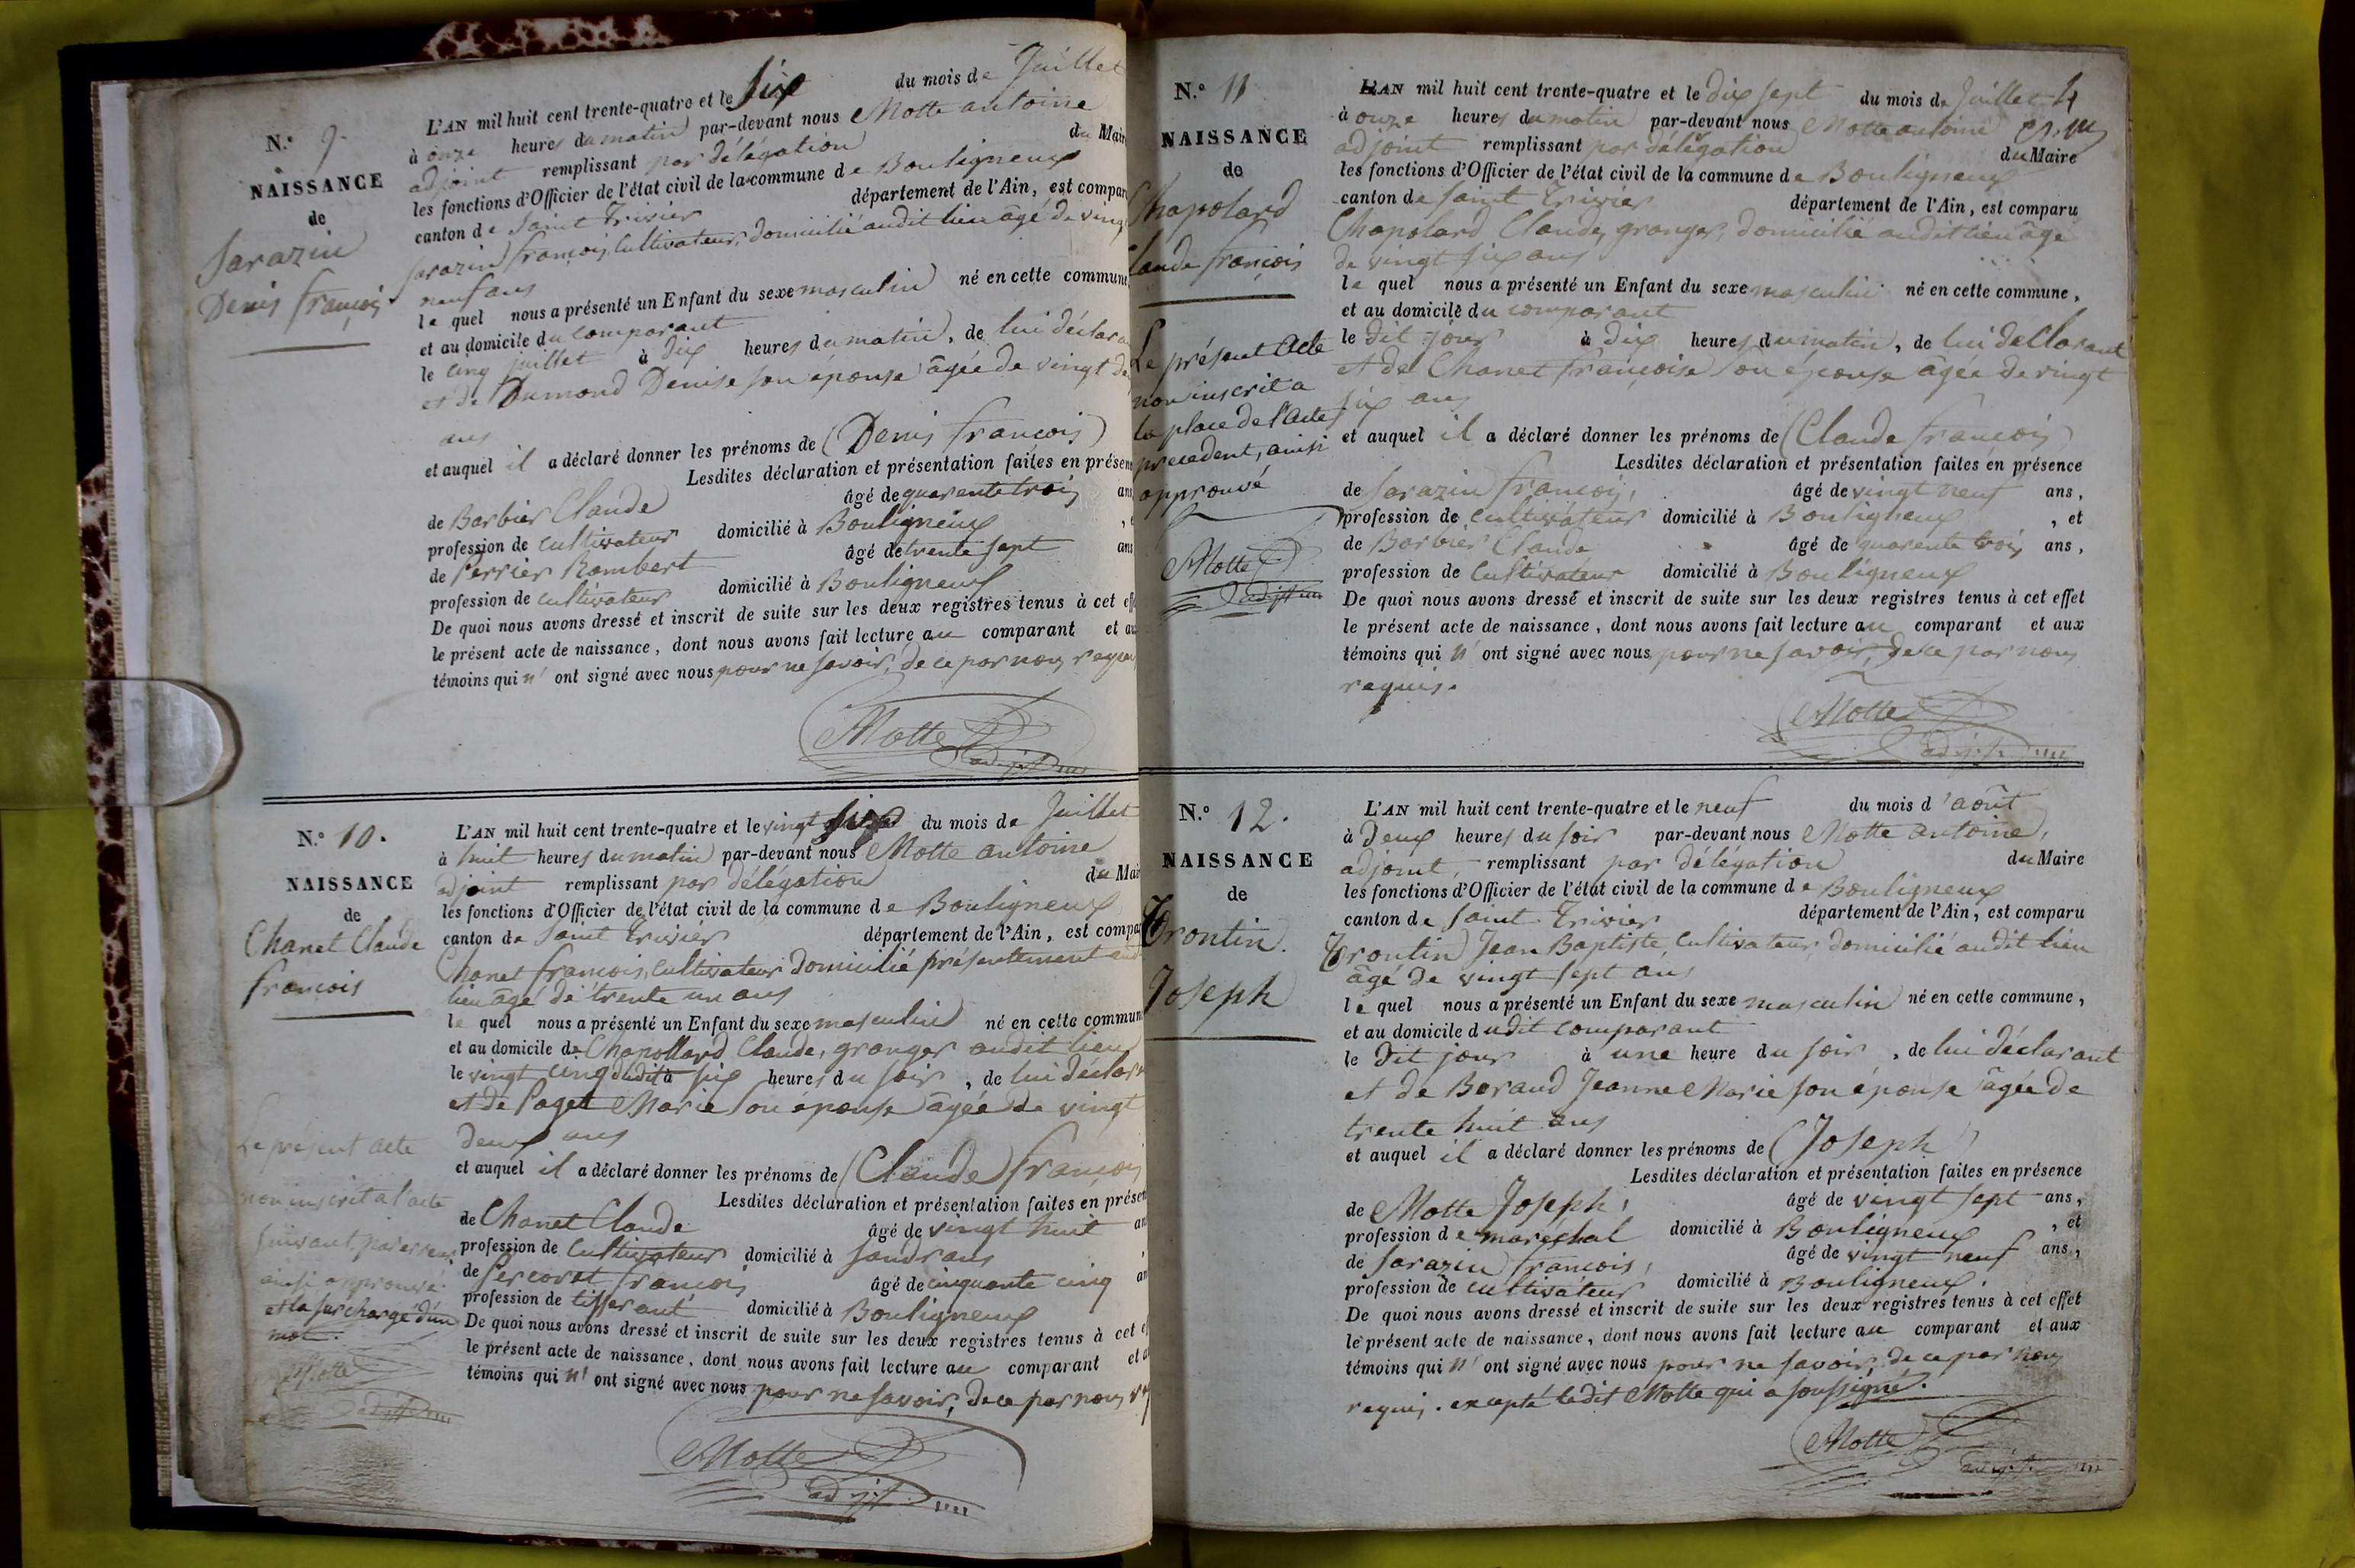 N.º 9.
NAISSANCE
de
Sarazin
Denis françois
L'AN mil huit cent trente-quatre et le Six du mois de Juillet
à onze heures du matin par-devant nous Motte antoine
adjoint remplissant par délégation du Maire
les fonctions d'Officier de l'état civil de la commune de Bouligneux
canton de Saint Trivier département de l'Ain, est compar
Sarazin françois, Cultivateur, domicilié audit lieu âgé de vingt
neuf ans
le quel nous a présenté un Enfant du sexe masculin né en cette commune
et au domicile du comparant
le cinq juillet à dix heures du matin, de lui déclara
et de Dumond Denise son épouse âgée de vingt de
ans
et auquel il a déclaré donner les prénoms de (Denis françois)
Lesdites déclaration et présentation faites en présen
de Barbier Claude âgé de quarente trois ans
profession de cultivateur domicilié à Bouligneux , e
de Perrier Rambert âgé de trente sept ans
profession de cultivateur domicilié à Bouligneux
De quoi nous avons dressé et inscrit de suite sur les deux registres tenus à cet effe
le présent acte de naissance, dont nous avons fait lecture au comparant et au
témoins qui n' ont signé avec nous pour ne savoir, de ce par nous requis
Motte
adjt
N.º 10.
NAISSANCE
de
Chanet Claude
françois
Le présent acte
non inscrit a l'acte
suivant, par erreur
ainsi approuvé.
et la surcharge d'un
mot.
Motte
adjt
L'AN mil huit cent trente-quatre et le vingt six du mois de Juillet
à huit heures du matin par-devant nous Motte antoine
adjoint remplissant par délégation du Mai
les fonctions d'Officier de l'état civil de la commune de Bouligneux
canton de Saint Trivier département de l'Ain, est compar
Chanet françois, Cultivateur domicilié présentement audit
lieu âgé de trente un ans
le quel nous a présenté un Enfant du sexe masculin né en cette commun
et au domicile de Chapollard Claude, granger audit lieu
le vingt cinq dudit à six heures du soir , de lui déclar
et de Paget Marie son épouse âgée de vingt
deux ans
et auquel il a déclaré donner les prénoms de (Claude françois
Lesdites déclaration et présentation faites en présen
de Chanet Claude âgé de vingt huit an
profession de Cultivateur domicilié à Sandrans
de Percorat françois âgé de cinquante cinq an
profession de tisserant domicilié à Bouligneux
De quoi nous avons dressé et inscrit de suite sur les deux registres tenus à cet e
le présent acte de naissance, dont nous avons fait lecture au comparant et a
témoins qui n' ont signé avec nous pour ne savoir, de ce par nous
Motte
adjt
N.º 11
NAISSANCE
de
Chapolard
Claude françois
Le présent Acte
non inscrit a
la place de l'acte
precedent, ainsi
approuvé
Motte
adjt
4
L'AN mil huit cent trente-quatre et le dix sept du mois de Juillet
à onze heures du matin par-devant nous Motte antoine
adjoint remplissant par délégation du Maire
les fonctions d'Officier de l'état civil de la commune de Bouligneux
canton de Saint Trivier département de l'Ain, est comparu
Chapolard Claude, granger, domicilié audit lieu âgé
de vingt six ans
le quel nous a présenté un Enfant du sexe masculin né en cette commune,
et au domicile du comparant
le dit jour à dix heures du matin, de lui déclarant
et de Chanet françoise son épouse âgée de vingt
six ans
et auquel il a déclaré donner les prénoms de (Claude françois)
Lesdites déclaration et présentation faites en présence
de Sarazin françois, âgé de vingt neuf ans,
profession de cultivateur domicilié à Bouligneux , et
de Barbier Claude âgé de quarente trois ans,
profession de Cultivateur domicilié à Bouligneux
De quoi nous avons dressé et inscrit de suite sur les deux registres tenus à cet effet
le présent acte de naissance, dont nous avons fait lecture au comparant et aux
témoins qui n' ont signé avec nous pour ne savoir, de ce par nous
requis.
Motte
adjt
N.º 12.
NAISSANCE
de
Trontin
Joseph
L'AN mil huit cent trente-quatre et le neuf du mois d'août
à Deux heures du soir par-devant nous Motte antoine,
adjoint, remplissant par délégation du Maire
les fonctions d'Officier de l'état civil de la commune de Bouligneux
canton de Saint Trivier département de l'Ain, est comparu
Trontin Jean Baptiste, Cultivateur, domicilié audit lieu
âgé de vingt sept ans
le quel nous a présenté un Enfant du sexe masculin né en cette commune,
et au domicile dudit comparant
le Dit jour à une heure du soir , de lui déclarant
et de Beraud Jeanne Marie son épouse âgée de
trente huit ans
et auquel il a déclaré donner les prénoms de (Joseph)
Lesdites déclaration et présentation faites en présence
de Motte Joseph, âgé de vingt sept ans,
profession de maréchal domicilié à Bouligneux , et
de Sarazin françois, âgé de vingt neuf ans,
profession de cultivateur domicilié à Bouligneux.
De quoi nous avons dressé et inscrit de suite sur les deux registres tenus à cet effet
le présent acte de naissance, dont nous avons fait lecture au comparant et aux
témoins qui n' ont signé avec nous pour ne savoir, de ce par nous
requis. excepté ledit Motte qui a soussigné.
Motte
adjt